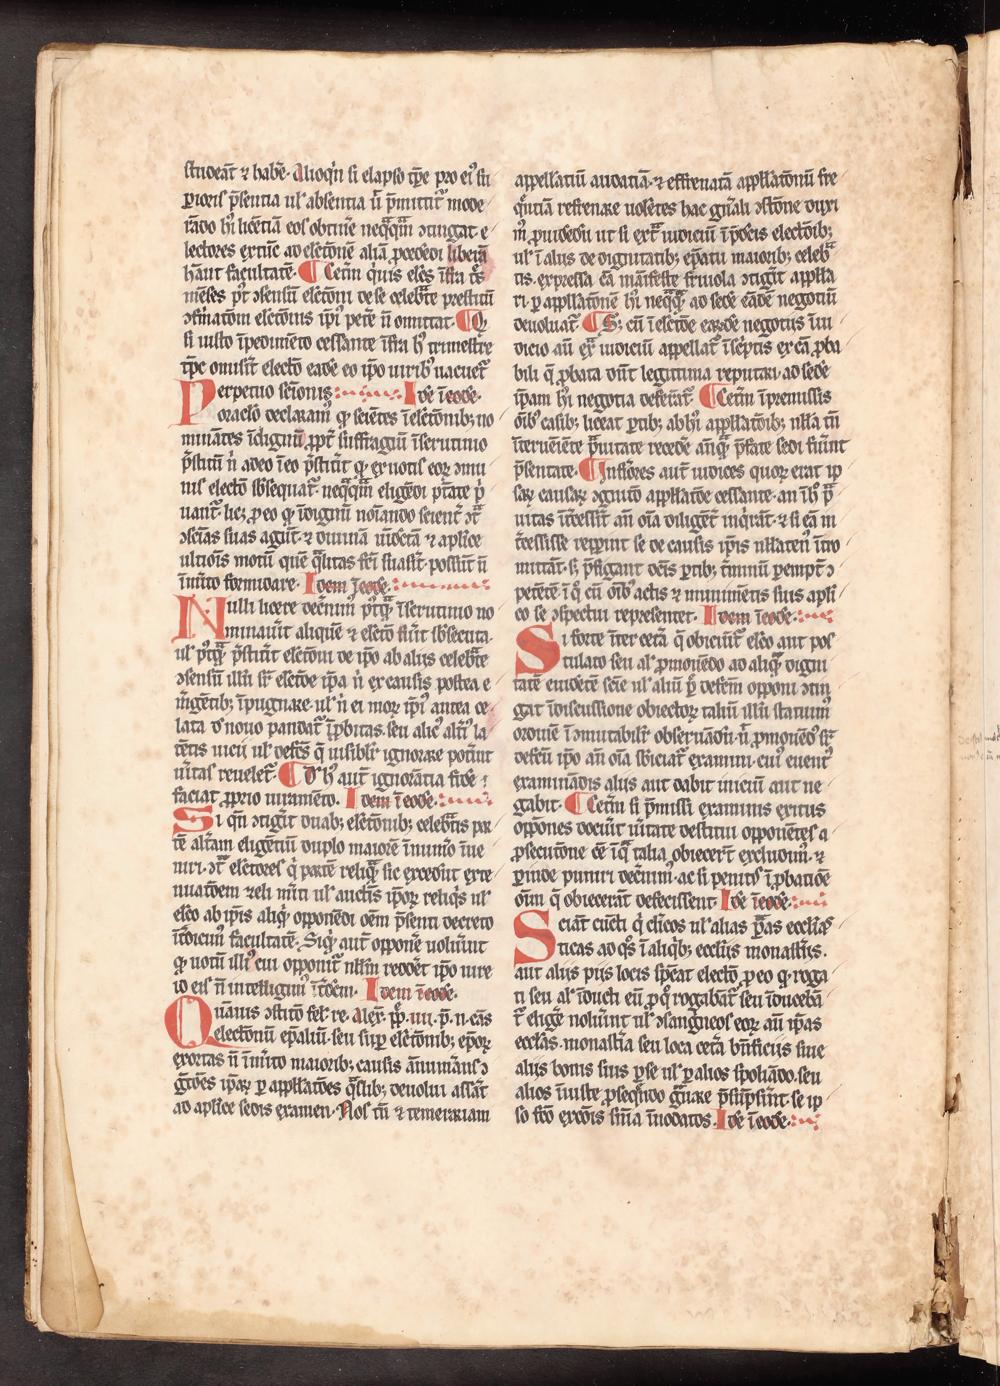 studeāt ⁊ habē̄. Alioq̇n si elapso tp̄e pro eiꝰ su
pioris p̄sentia ul' absentia ū p̄mittit̄ mode
rādo hi licētiā eos obtinē neq̄q̄m ↄtingat e
lectores extūc ad elcōnē aliā p̄cedēdi liberā
hāānt facultatē. ¶ Ceterū q̇uis elcs īfra t̄s
mēses p̄t ↄsensū elcōni de se celebr̄te prestitū
ↄfirmatōm elcōnis ip̄i petē n̄ omittat. ¶ Q
si iusto īpedimēto cessante īfra h' trimestre
tp̄e omis̄it electō eadē eo ip̄o uiribꝰ uacuet̄
Perpetuo sēionis Idē ī eodē.
oraclo declaramꝰ q̄ sciētes ī elcōnibꝫ no
minātes īdignū ꝓpt̄ suffragiū ī scrutinio
p̄stitū n̄ adeo ī eo p̄stit̄it q̄ ex uotis eoꝝ ↄmu
nis electō sb̄sequat̄. neq̄q̄m eligēdi pt̄ate p̄
uant̄. licꝫ ꝓ eo q̄ īdignū noīando scient̄ ↄt̄
ↄscīas suas agūt ⁊ diuinā uīdctā ⁊ aplice
ultiōis motū quē q̄litas fcī suas̄it. possūt n̄
īm̄ito formidare. Idem ī eodē
Nulli licere decnimꝰ pt̄q̄ ī scrutinio no
minauit aliquē ⁊ elctō fuit sb̄secuta.
ul' pt̄q̄ p̄stit̄it elcōni de ip̄o ab aliis celebr̄te
ↄsensū illū sr̄ elcōe ip̄a n̄ ex causis postea e
m̄gētibꝫ īpugnare. ul' n̄ ei moꝝ ip̄iꝰ antea ce
lata d' nouo pandat̄ īp̄bitas. seu alicꝰ altiꝰ la
tētis uicii ul' defcs q̄ uisibil̄r ignorare potuit
ūitas reuelet̄. ¶ D' h' aut̄ ignorātia fidē
faciat ꝓprio iuramēto. Idem ī eodē
Si q̄n ↄtigit̄ duabꝫ elcōnibꝫ celebr̄tis par
tē alt̄am eligētiū duplo maiorē ī numo īue
niri. ↄt̄ elcōres q̇ partē reliq̄ sic excedūt exte
nuatōem zeli m̄iti ul' auctis ip̄oꝝ reliq̇s ul'
elcō ab ip̄is aliq̇ opponēdi oēm p̄senti decreto
īt̄dicimꝰ facultatē. Siq̇ aut̄ opponē uolūint
q̄ uotū illiꝰ cui opponit̄ nullū redd̄et ip̄o iure
id eis n̄ intelligimꝰ īt̄dcm. Idem ī eodē.
Quāuis ↄstitō fel' re. Alex̄. pp̄. iiii. p̄. n. cās
electionū ep̄aliū. seu sup̄ elcōnibꝫ ep̄oꝝ
exortas n̄ īm̄ito maioribꝫ causis ānumāns ↄ
gtōes ip̄aꝝ p̱ appl̄latōes q̄slibꝫ deuolui ass̄at
ad aplice sedis examen. Nos tn̄ ⁊ temerariam
appellatiū audatiā. ⁊ effrenatā appl̄latōnū fre
q̄ntiā refrenare uolētes hac gn̄ali ↄstōne duxi
mꝰ ꝓuidēdū ut si extª iudiciū ī p̄dcis elcōibꝫ
ul' ī aliis de dignitatibꝫ ep̄atu maioribꝫ celebr̄
tis. expressa cā māifeste friuola ↄtigit̄ appl̄la
ri. p̱ appl̄latōnē hi neq̄q̄ ad sedē eādē negotiū
deuoluat̄. ¶ Sꝫ cū ī elcōe eaꝝdē negotiis ī iu
dicio aū exª iudiciū appellat̄ ī sc̄ptis ex cā ꝓba
bili q̄ ꝓbata debit legitima reputari. ad sedē
ip̄am hi negotia deferāt̄. ¶ Ceterū ī premissis
oīb' casibꝫ liceat p̱tibꝫ ab hi appl̄latōibꝫ nulla tn̄
īteruēiētē p̄uitate recedē anq̄ p̄fate sedi fuint
p̄sentate. ¶ Inferiores aut̄ iudices quoꝝ erat ip̄
saꝝ causaꝝ ↄgnitō appl̄latōe cessante. an ī h' p̄
uitas īt̄cessit̄ an̄ oīa diligēt̄ inq̇rāt. ⁊ si eā in
t̄cessisse repp̄int se de causis ip̄is nullaten' ītro
mittāt. sꝫ p̄figant dcīs p̱tibꝫ t̄minū pempt̄ↄ
petētē ī q̊ cū oīb' actis ⁊ munimētis suis apli
co se ↄspectui representet. Idem ī eodē
Si forte īter cetā q̄ obiciūt̄ elcō aut pos
tulato seu al' ꝓmouēdo ad aliq̄ digni
tatē euidētē scīe ul' aliū p̄ defcm opponi ↄtin
gat īdiscussione obiectoꝝ taliū illū statuimꝰ
ordinē īↄmutabil̄r obseruādū. ū ꝓmouēdꝰ sr̄
defcū ip̄o an̄ oīa sb̄iciat̄ examini. cuiꝰ euent'
examinādis aliis aut dabit iniciū aut ne
gabit. ¶ Ceterū si p̄missi examinis exitus
oppōnes docuit ūitate destitui opponētes a
ꝓsecutōne cē ī q̄ talia obiecer̄t excludimꝰ. ⁊
p̱inde puniri decnimꝰ. ac si penit' ī ꝓbatiōe
oīm q̄ obiecerāt defecissent. Idē ī eodē
Sciāt cūcti q̇ cl̄icos ul' alias p̱as eccl̄ias
ticas ad q̊s ī aliq̇bꝫ ecclīis monast̄iis.
aut aliis piis locis spcat electō. ꝓ eo q̄ roga
ti seu al' īducti eū ꝓ q̊ rogabāt̄ seu īducebā
t̄ eligē noluint ul' ↄsanguīeos eoꝝ aū ip̄as
eccl̄as. monast̄ia seu loca cetā bn̄ficiis siue
aliis bonis suis p̱ se ul' p̱ alios spoliādo. seu
alios īiuste ꝓseq̄ndo gᵃuare p̄sūps̄int. se ip̄
so fcō excōis sn̄ia īnodatos. Idē ī eodē